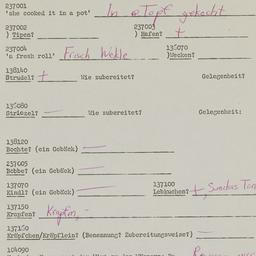 237001
'she cooked it in a pot' In a Topf gekocht
237002 237003
) Tipen? ) Hafen? +
237004 136070
'n fresh roll' Frisch Wekle )Wecken?
138140
Strudel? + Wie zubereitet? Gelegenheit?
136080
Striezel? — Wie zubereitet? Gelegenheit:
138120
Bochte? (ein Gebäck) —
237005
Bobbe? (ein Gebäck) —
137070 137100
Kindl? (ein Gebäck) — Lebkuchen? +
137150
Krapfen? Krapfn, -
137160
Kräpfchen/Kräpflein? (Benennung? Zubereitungsweise?) —
104090